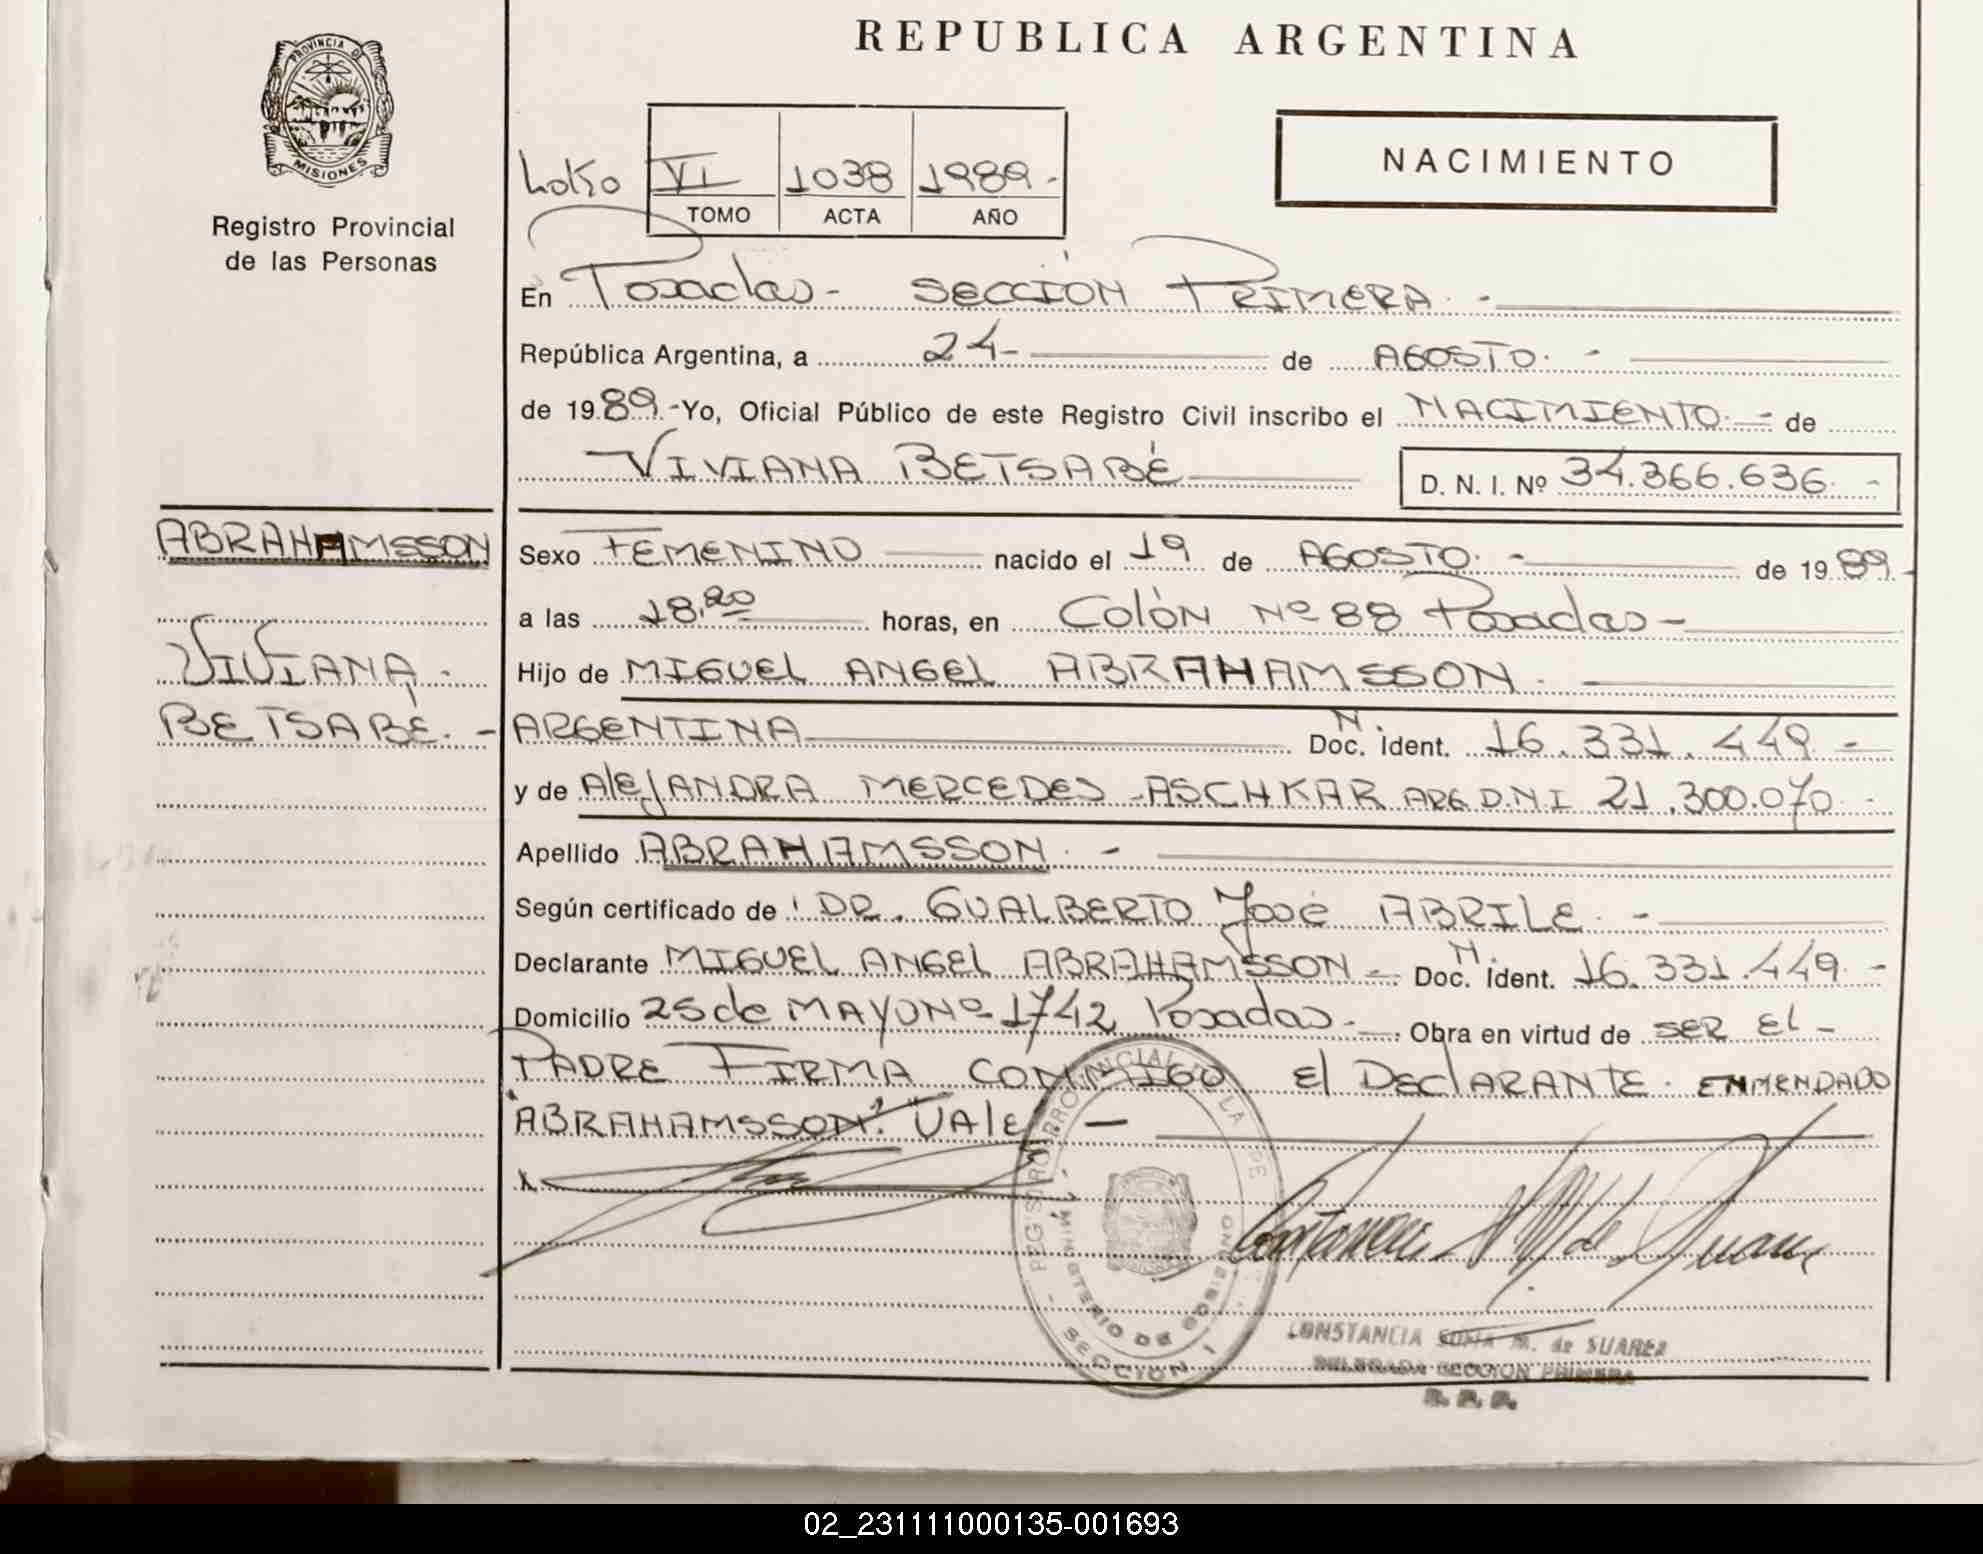 REPUBLICA ARGENTINA
PROVINCIA DE
MISIONES
Registro Provincial
de las Personas
VI 1038 1989.-
TOMO ACTA AÑO
NACIMIENTO
En Posadas- SECCIÓN PRIMERA.-
República Argentina, a 24- de AGOSTO.-
de 1989.-Yo, Oficial Público de este Registro Civil inscribo el NACIMIENTO.- de
VIVIANA BETSABÉ D. N. I. Nº 34.366.636.-
ABRAHAMSSON
VIVIANA.
BETSABÉ.-
Sexo FEMENINO nacido el 19 de AGOSTO.- de 1989.-
a las 18,20 horas, en Colón Nº 88 Posadas-
Hijo de MIGUEL ANGEL ABRAHAMSSON.
ARGENTINA Doc. N. Ident. 16.331.449.-
y de AlEJANDRA MERCEDES ASCHKAR ARG D.N.I 21.300.070.-
Apellido ABRAHAMSSON.-
Según certificado de DR. GUALBERTO José ABRILE.-
Declarante MIGUEL ANGEL ABRAHAMSSON- Doc. N. Ident. 16.331.449.-
Domicilio 25 de MAYO Nº 1742 Posadas.- Obra en virtud de SER EL-
PADRE FIRMA CONMIGO El DEClARANTE. ENMENDADO
"ABRAHAMSSON". VAlE -
REGISTRO PROVINCIAL DE LA
MINISTERIO DE GOBIERNO
SECCION 1
CONSTANCIA SOFIA M. de SUAREZ
DELEGADA SECCION PRIMERA
R. P. P.
02_231111000135-001693